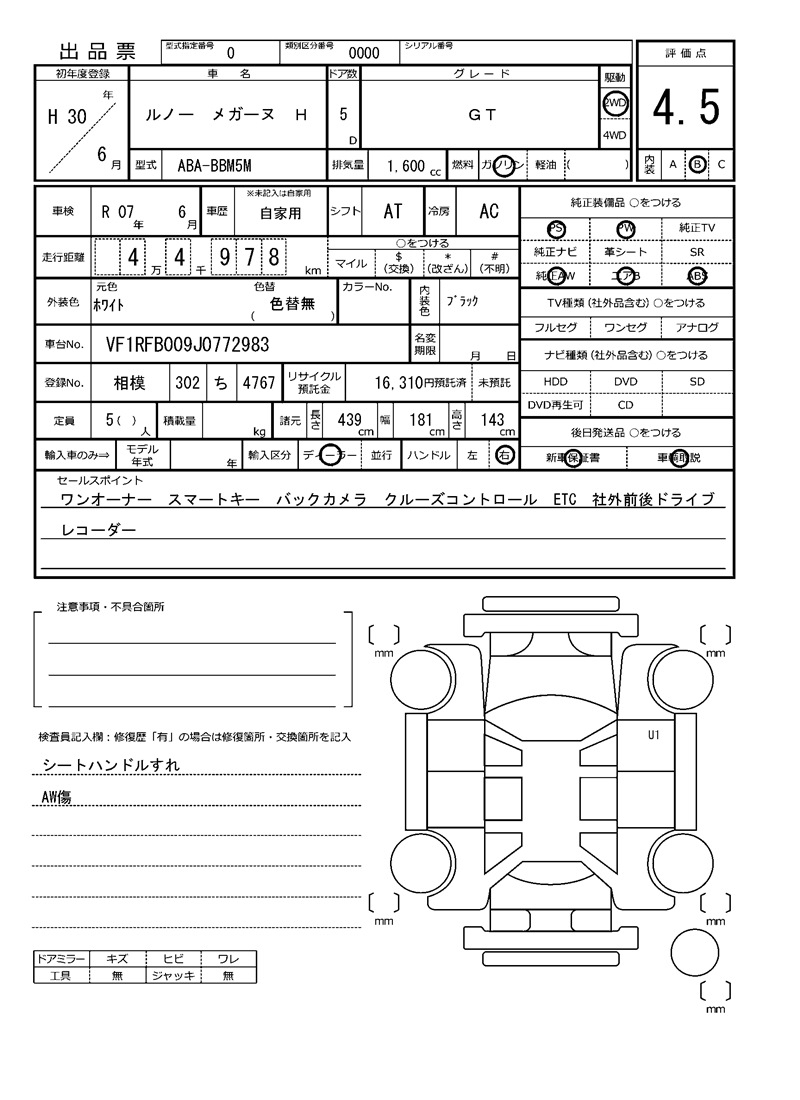 出品票 型式指定番号 0 類別区分番号 0000 シリアル番号
評価点
初年度登録 車名 ドア数 グレード 駆動
H 30 年 6 月 ルノー メガーヌ H 5 D GT 2WD 4WD
4.5
型式 ABA-BBM5M 排気量 1,600 cc 燃料 ガソリン 軽油 ( )
内装 A B C
車検 R 07 年 6 月 車歴 ※未記入は自家用 自家用 シフト AT 冷房 AC
走行距離 4 万 4 千 9 7 8 km ○をつける マイル $ (交換) * (改ざん) # (不明)
外装色 元色 ホワイト 色替 ( 色替無 ) カラーNo. 内装色 ブラック
車台No. VF1RFB009J0772983 名変期限 月 日
登録No. 相模 302 ち 4767 リサイクル預託金 16,310円預託済 未預託
定員 5 ( ) 人 積載量 kg 諸元 長さ 439 cm 幅 181 cm 高さ 143 cm
輸入車のみ⇒ モデル年式 年 輸入区分 ディーラー 並行 ハンドル 左 右
純正装備品 ○をつける
PS PW 純正TV
純正ナビ 革シート SR
純正AW エアB ABS
TV種類 (社外品含む) ○をつける
フルセグ ワンセグ アナログ
ナビ種類 (社外品含む) ○をつける
HDD DVD SD
DVD再生可 CD
後日発送品 ○をつける
新車保証書 車輌取説
セールスポイント
ワンオーナー スマートキー バックカメラ クルーズコントロール ETC 社外前後ドライブ
レコーダー
注意事項・不具合箇所
検査員記入欄：修復歴「有」の場合は修復箇所・交換箇所を記入
シートハンドルすれ
AW傷
ドアミラー キズ ヒビ ワレ
工具 無 ジャッキ 無
mm mm
U1
mm mm
mm